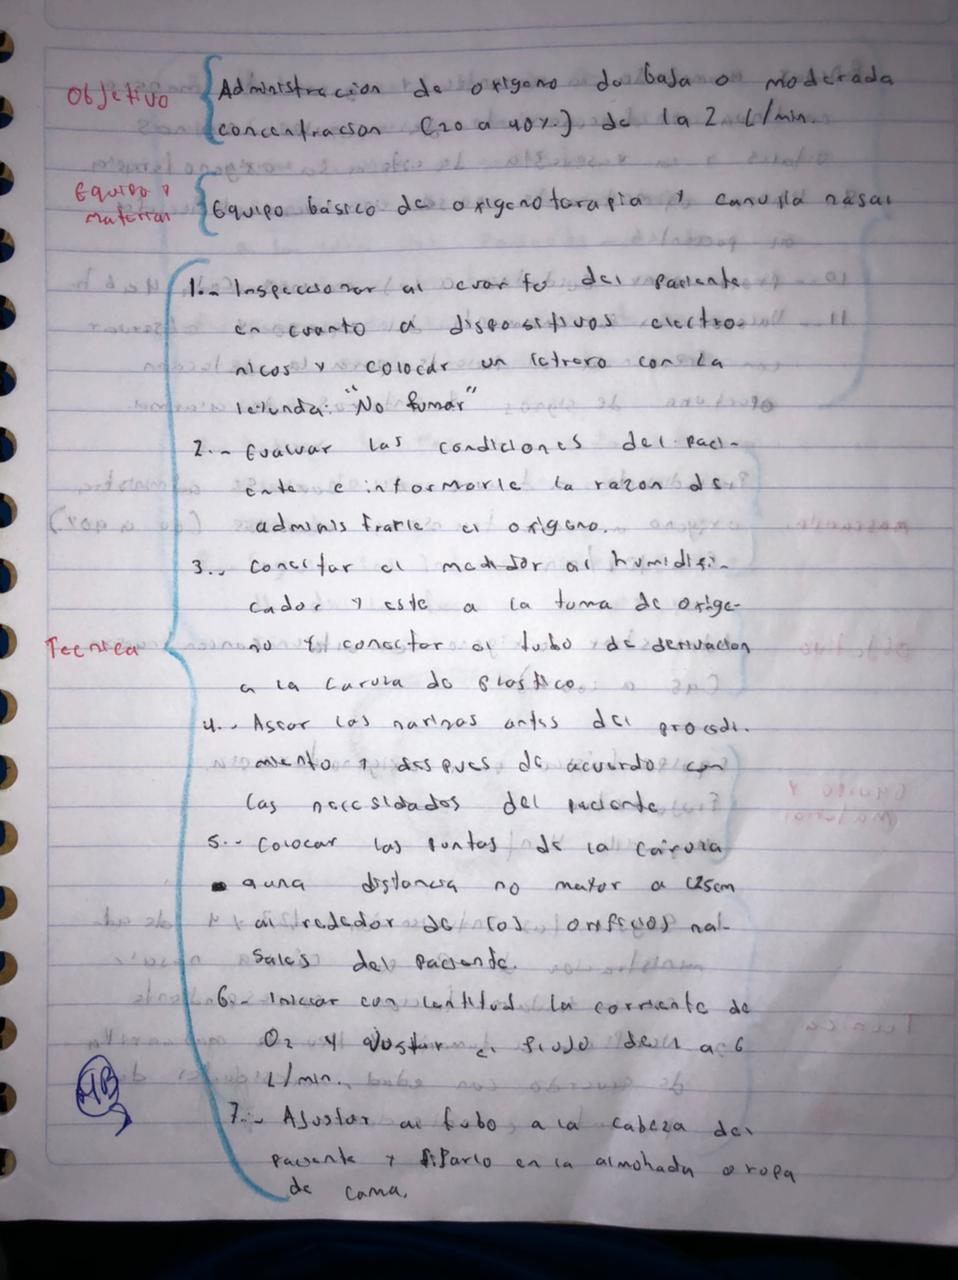 Objetivo
Administracion de oxigeno de baja o moderada
concentracion (20 a 40%.) de 1a 2 L/min.
Equipo y
material
Equipo básico de oxigenoterapia y canula nasal
Tecnica
1.- Inspeccionar al cuarto del paciente
en cuanto a dispositivos electro-
nicos y colocar un letrero con la
leyenda: "No fumar"
2.- Evaluar las condiciones del paci-
ente e informarle la razon de
administrarle el oxigeno.
3.- Conectar el medidor al humidifi-
cador y este a la toma de oxige-
no y conectar el tubo de derivacion
a la canula de plastico
4.- Asear las narinas antes del procedi-
miento y despues de acuerdo con
las necesidades del paciente
5.- Colocar las puntas de la cánula
a una distancia no mayor a 1.25cm
alrededor de los orificios na-
sales del paciente.
6.- Iniciar con lentitud la corriente de
O2 y ajustar el flujo de 1 a 6
L/min.
7.- Ajustar al tubo a la cabeza del
paciente y fijarlo en la almohada o ropa
de cama.